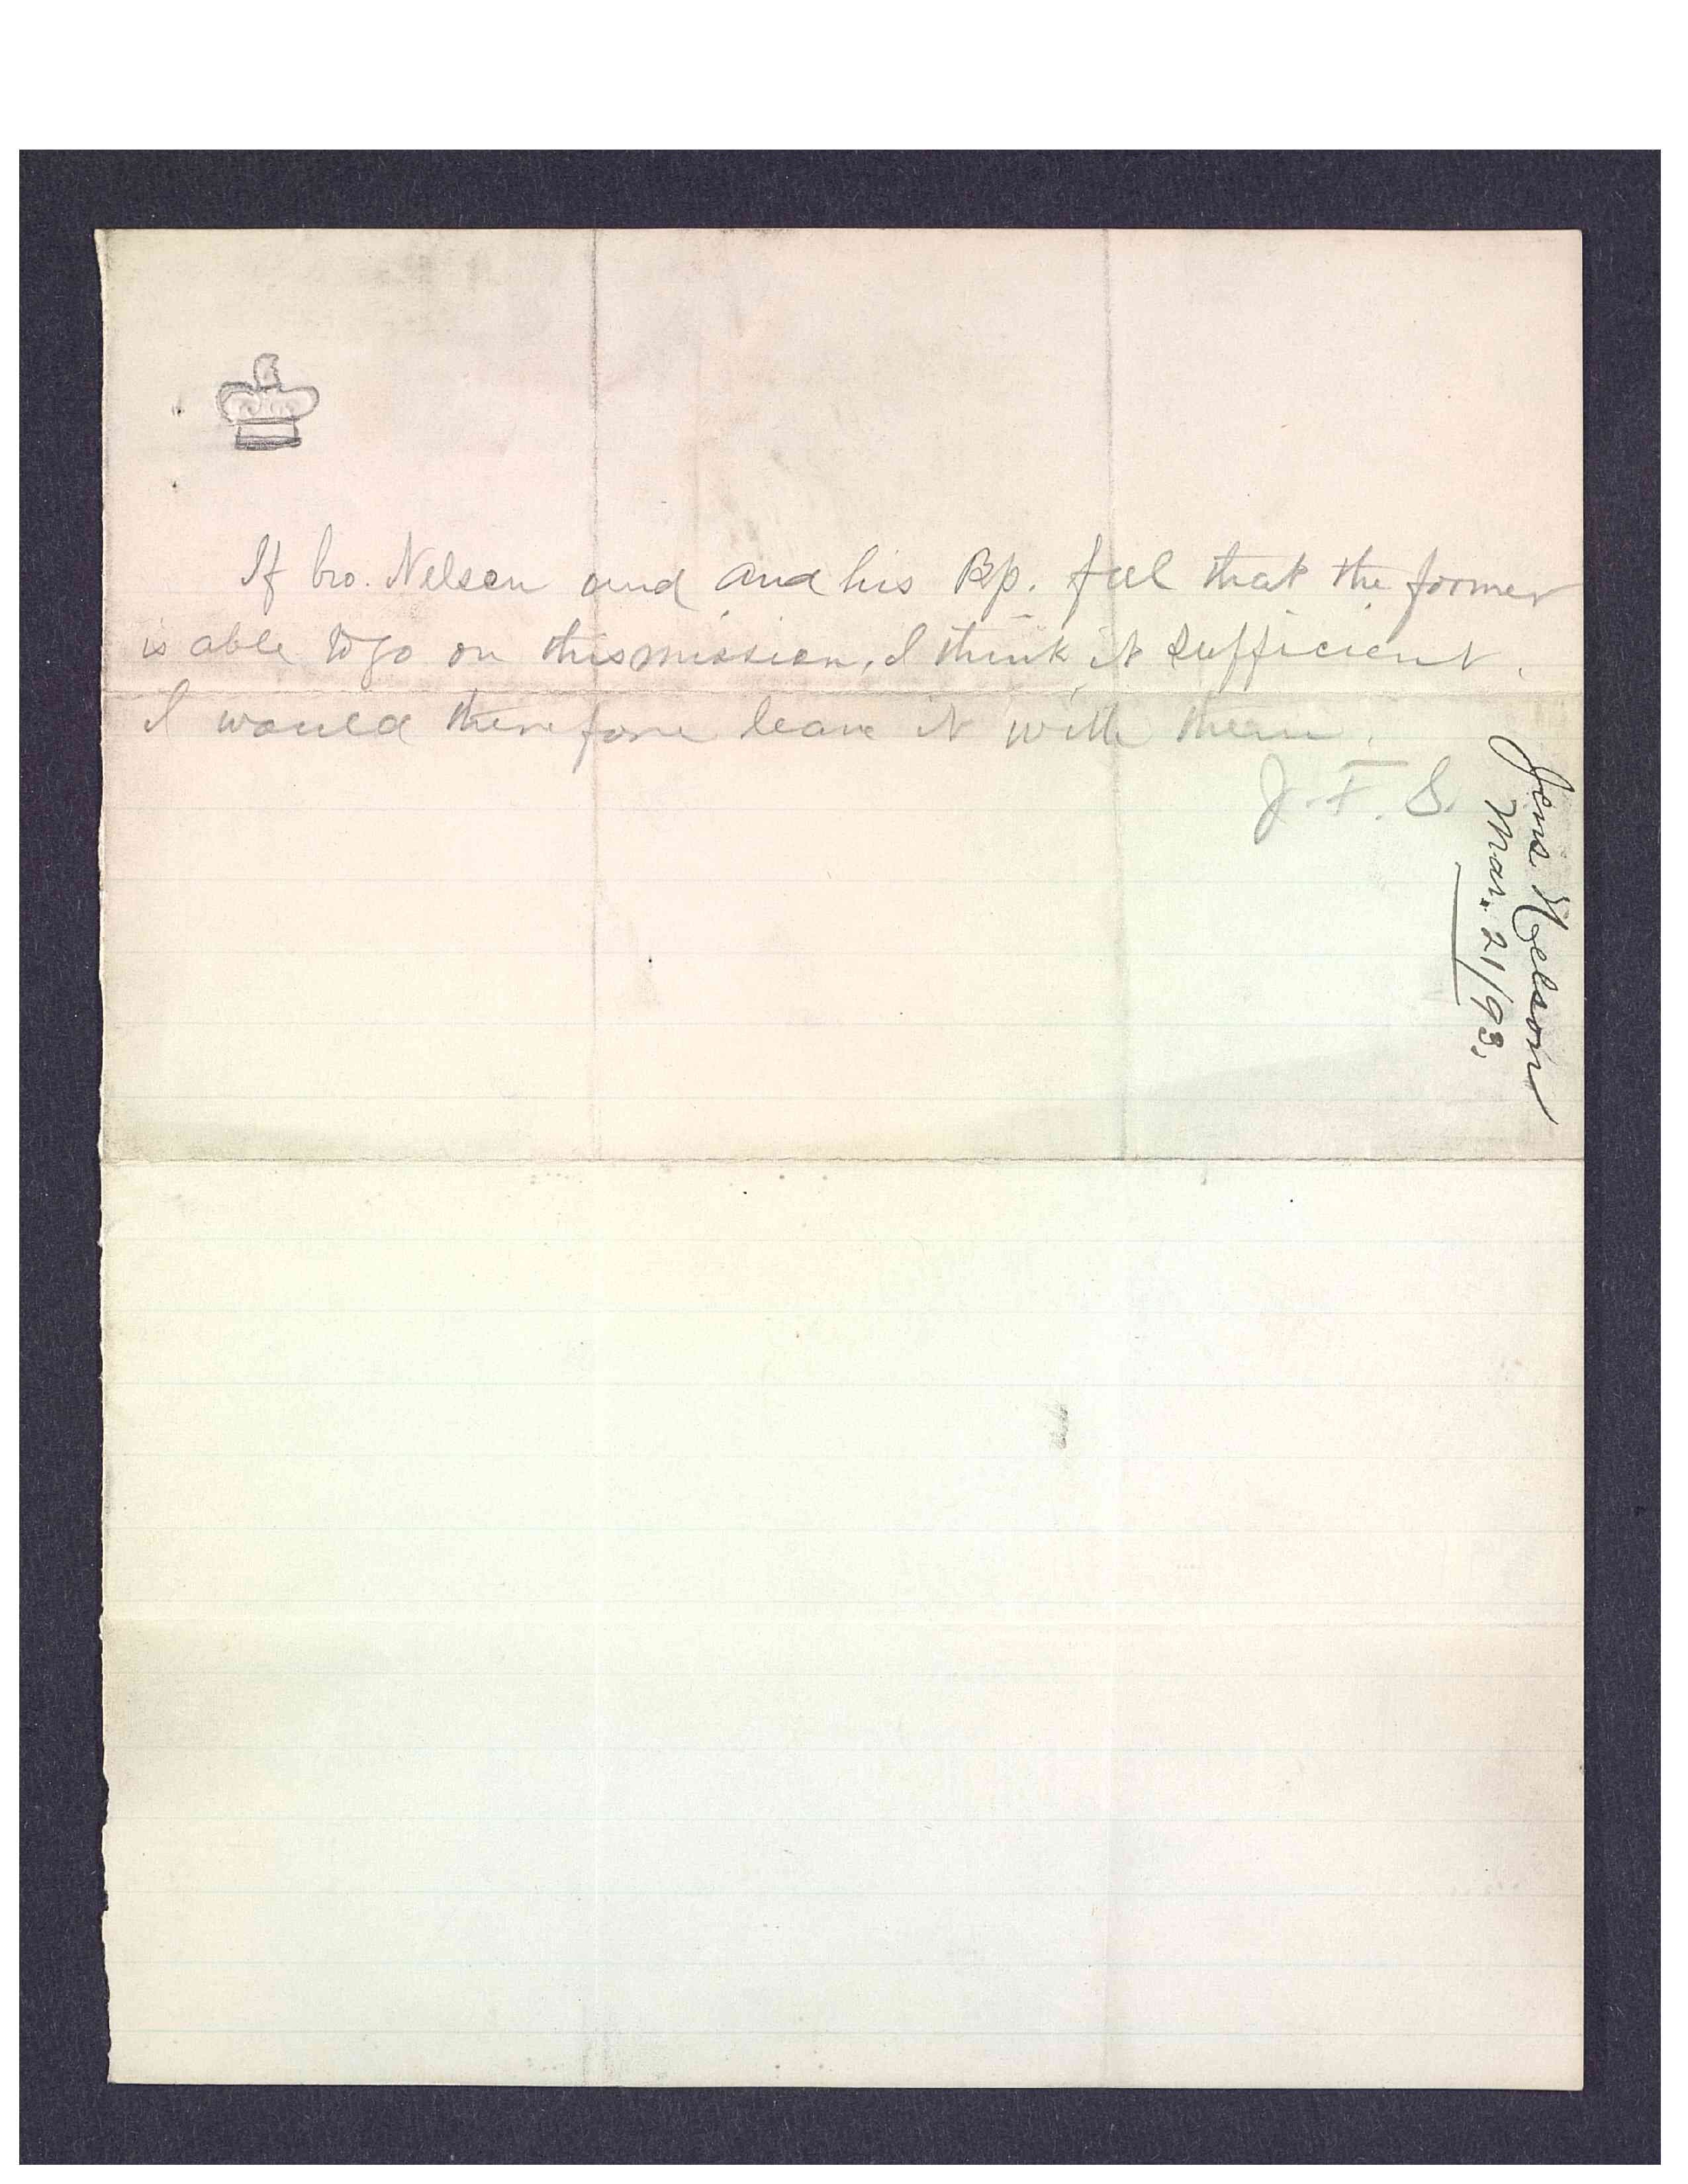 If bro. Nelsen and and his Bp. feel that the former
is able to go on this mission, I think it sufficient.
I would therefore leave it with them.
J. F. S.
Jens Nielson
Mar. 21/93.